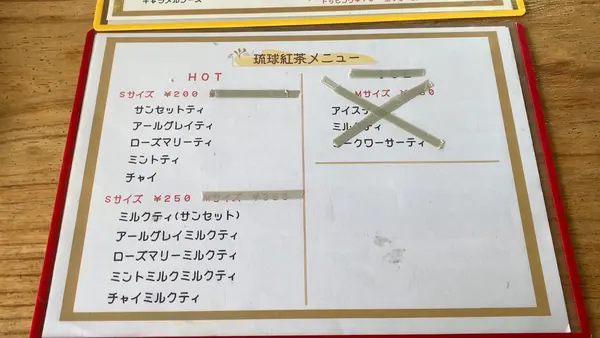 キャラメルソース
琉球紅茶メニュー
HOT
Sサイズ ¥200
サンセットティ
アールグレイティ
ローズマリーティ
ミントティ
チャイ
Sサイズ ¥250
ミルクティ(サンセット)
アールグレイミルクティ
ローズマリーミルクティ
ミントミルクミルクティ
チャイミルクティ
Mサイズ
アイス
ミルクティ
ークワーサーティ